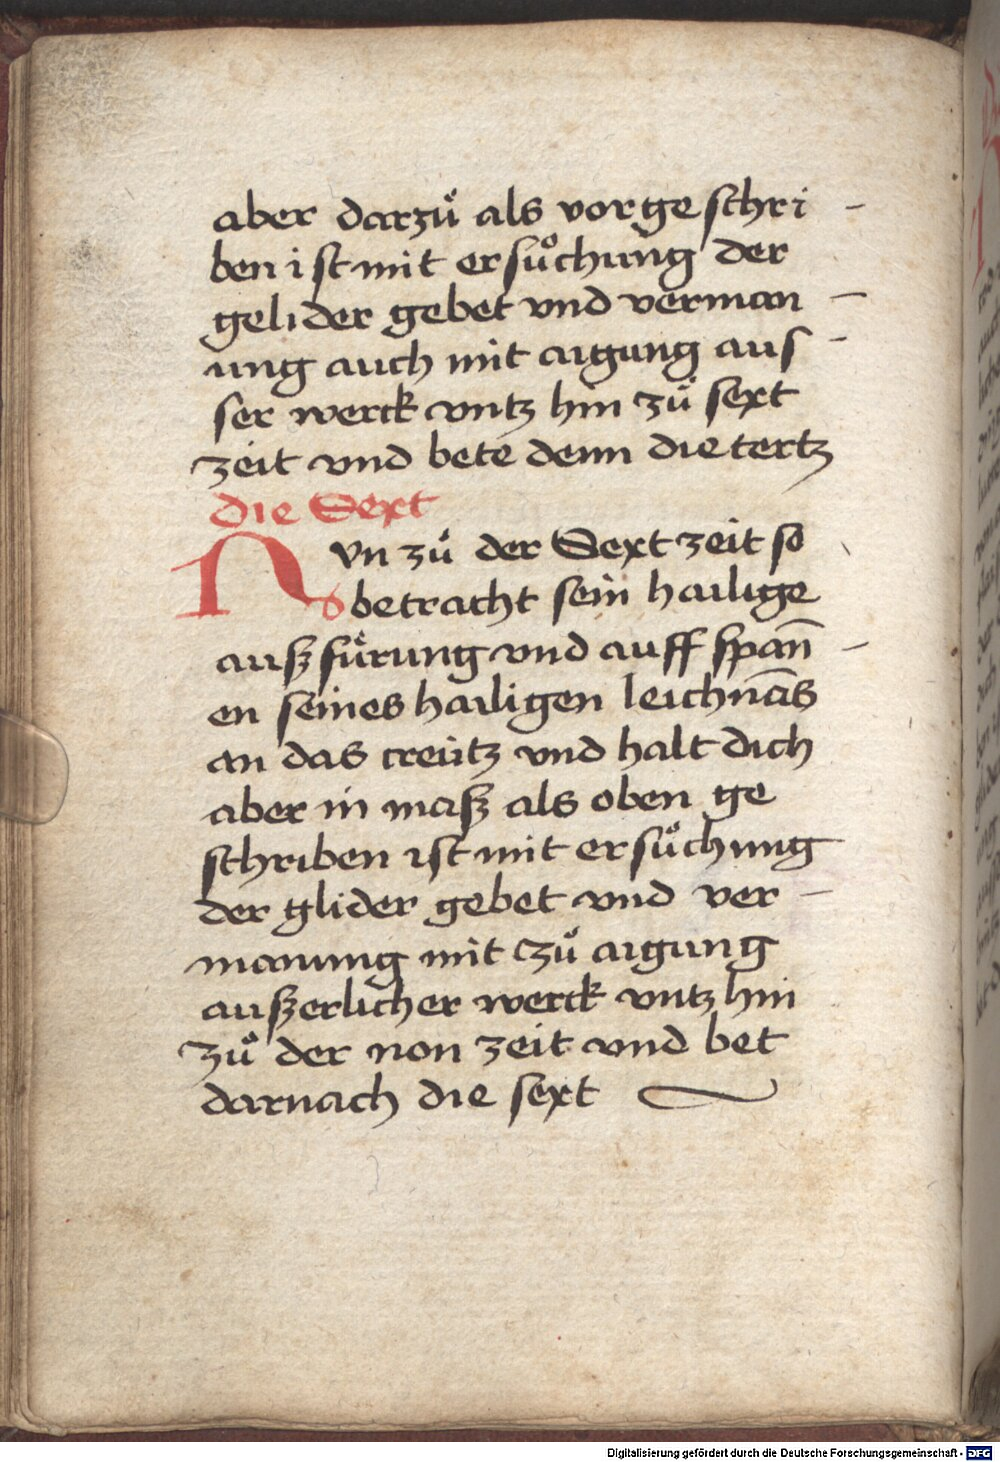 aber darzuͦ als vor ge schri -
ben ist mit ersuͦchung der
gelider gebet vnd verman -
ung auch mit aigung aus -
ser werck vntz hin zuͦ sext
zeit vnd bete denn die tertz
die Sext
Nvn zuͦ der Sext zeit so
betracht sein hailige
auszfuͤrung vnd auff span̄ -
en seines hailigen leichnās
an das creütz vnd halt dich
aber in masz als oben ge
schriben ist mit ersuͦchung
der glider gebet vnd ver -
manung mit zuͦ aigung
auszerlicher werck vntz hin
zuͦ der non zeit vnd bet
darnach die sext
Digitalisierung gefördert durch die Deutsche Forschungsgemeinschaft - DFG